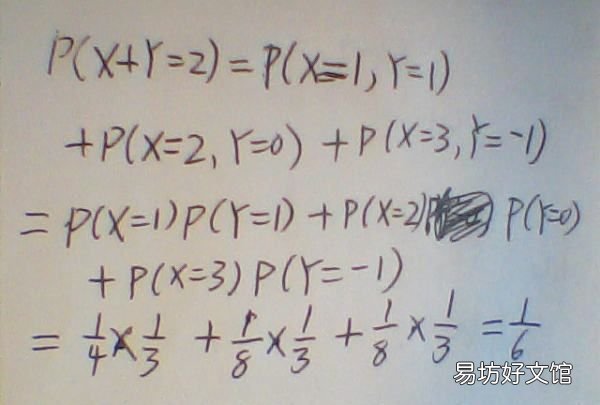 P(X+Y=2)=P(X=1,Y=1)
+P(X=2,Y=0)+P(X=3,Y=-1)
=P(X=1)P(Y=1)+P(X=2)P(Y=0)
+P(X=3)P(Y=-1)
=1/4×1/3+1/8×1/3+1/8×1/3=1/6
易坊好文馆